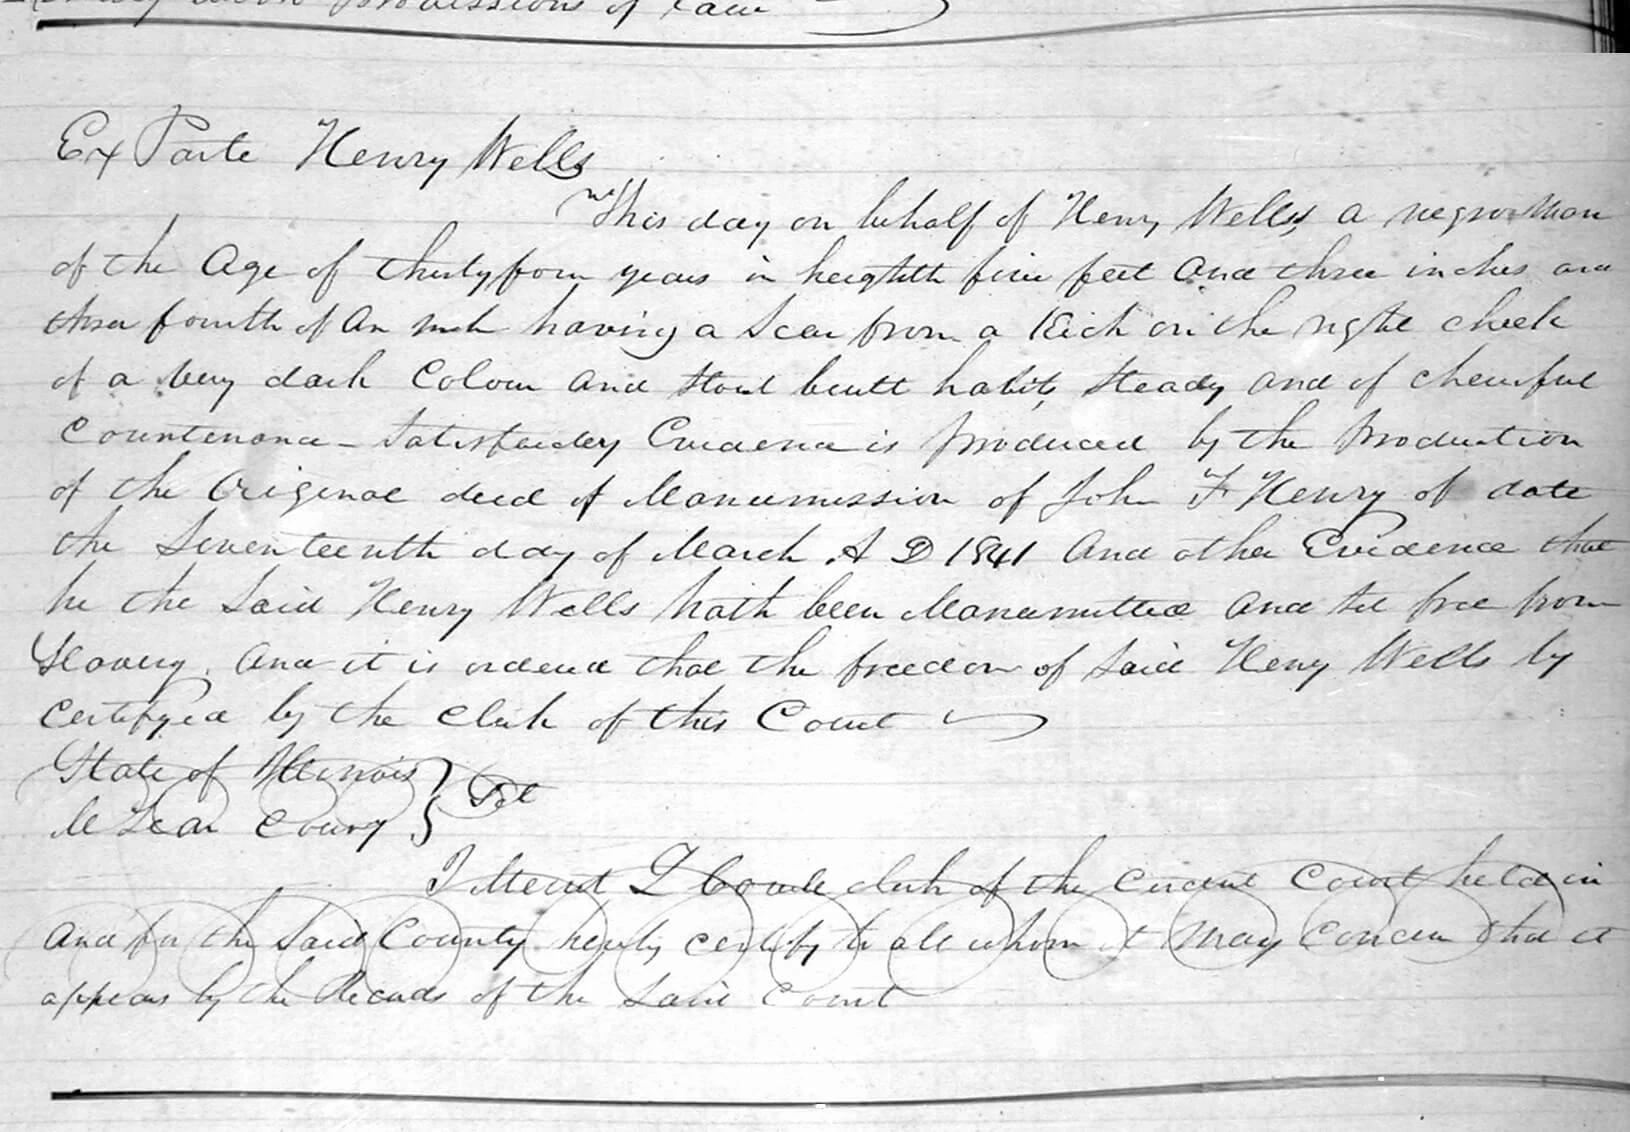 professions of Law
Ex Parte Henry Wells
This day on behalf of Henry Wells, a negro Man
of the Age of thirty four years in heighth five feet And three inches and
three fourth of An inch having a Scar from a Kick on the right cheek
of a very dark Colour And Stout built habits, Steady And of cheerful
Countenance - Satisfactory Evidence is produced by the Production
of the Original deed of Manumission of John F Henry of date
the Seventeenth day of March A D 1841 And other Evidence that
he the Said Henry Wells hath been Manumitted And Set free from
Slavery. And it is ordered that the freedom of Said Henry Wells by
Certifyed by the Clerk of this Court
State of Illinois
Mc Lean County } Sct
I Merit L Covell clerk of the Circuit Court held in
And for the Said County hereby certify to all whom it May Concern that it
appears by the Records of the Said Court